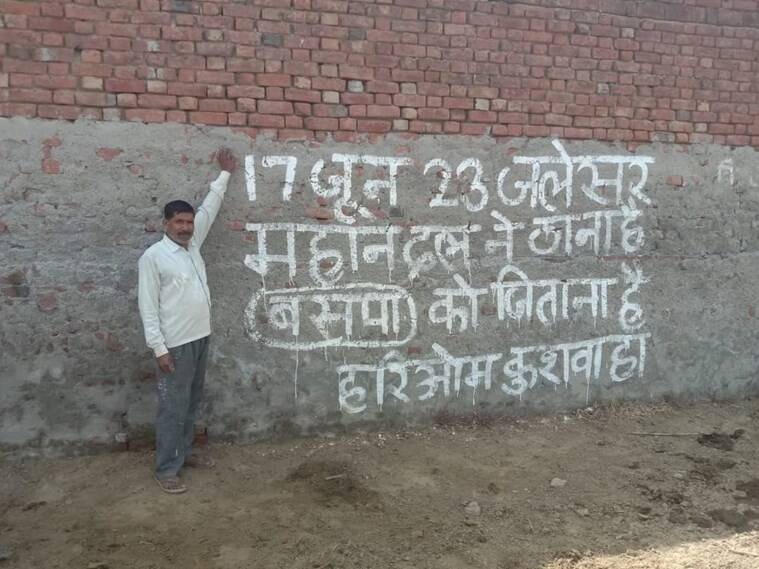 17 जून 23 जलेसर
महानद्रल ने ठाना है
बसपा को जिताना है
हरिओम कुशवाहा